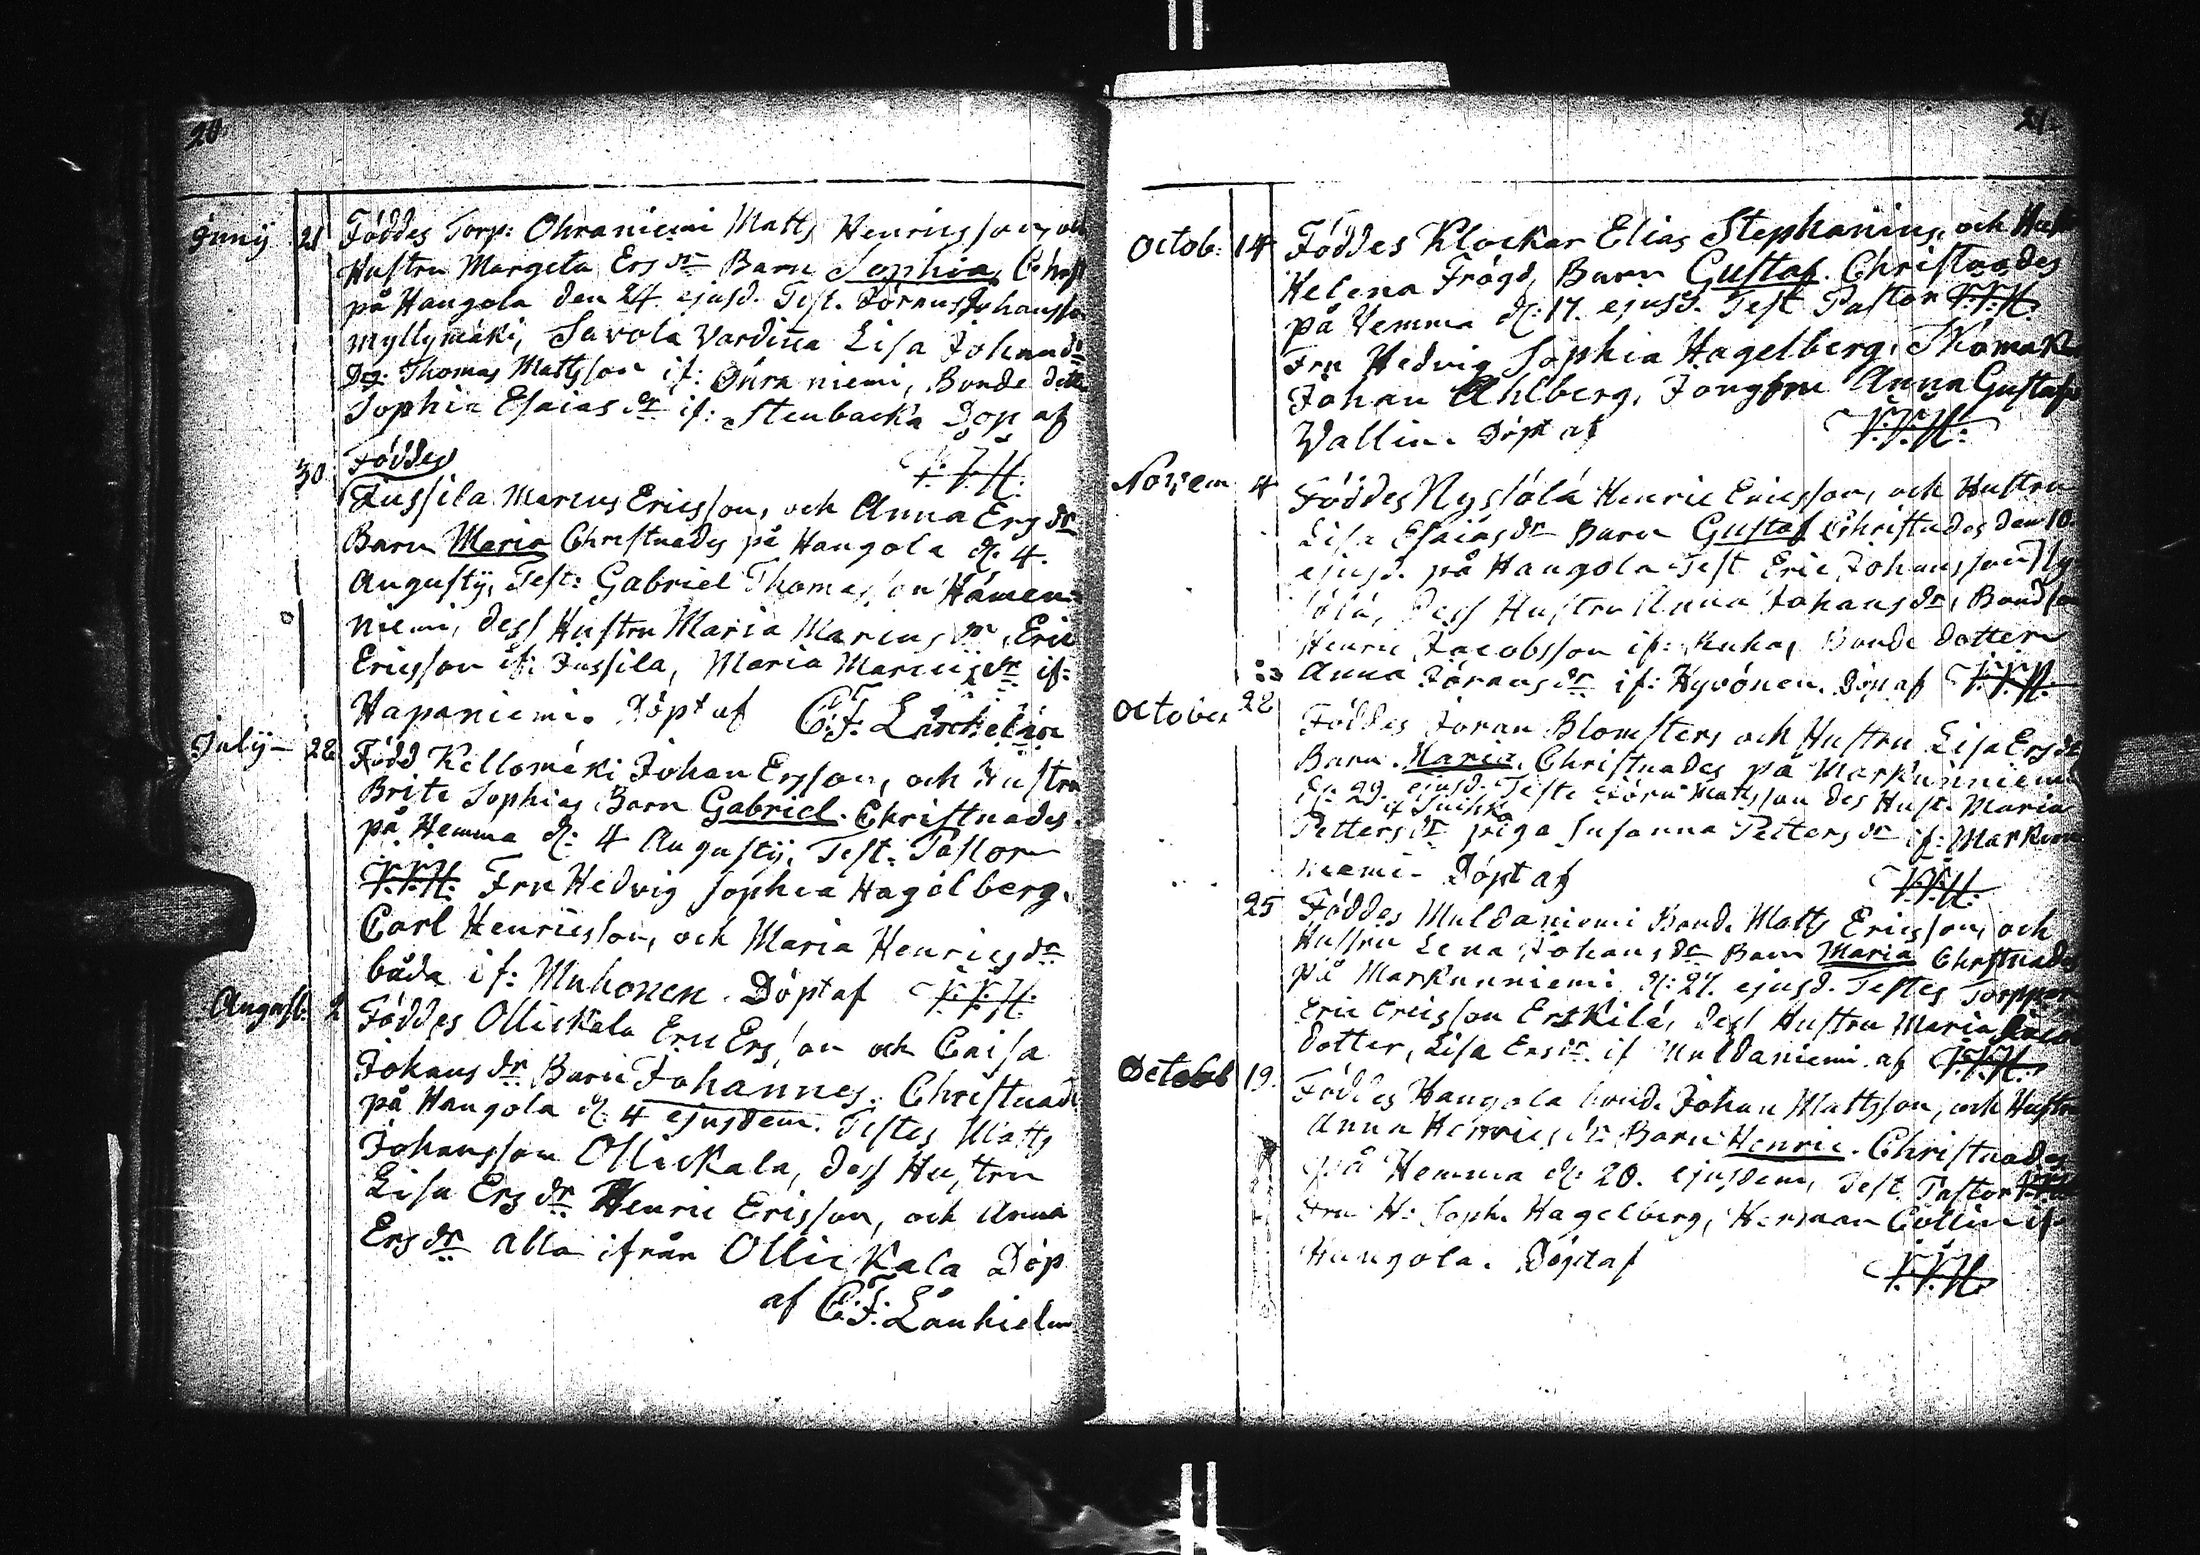 20
Juny 21 Föddes Torp: Ohraniemi Matts Henricsson, och
Hustru Margeta Ersdr Barn Sophia, Christ
på Haugola den 24 ejusd. Test. Jöran Johansson
Myllymäki, Savola Värdinna Lisa Johansdr
Dg: Thomas Mattsson if: Ohraniemi, Bonde dotter
Sophia Esaiasdr if: Stenbacka Döp af
V.V.H.
30. Föddes
Jussila Marcus Ericsson, och Anna Ersdr
Barn Maria Christnades på Haugola d: 4.
Augustij, Test: Gabriel Thomasson Hämen=
niemi, dess Hustru Maria Marcusdr, Eric
Ericsson if: Jussila, Maria Marcusdr if:
Hapaniemi. Döpt af C.F.
July 28 Född Kellomäki Johan Ersson, och Hustru
Brite Sophias Barn Gabriel. Christnades
på Hemma d: 4 Augustij, Test: Pastor
V.V.H. Fru Hedvig Sophia Hagelberg,
Carl Henricsson, och Maria Henricsdr
båda if: Muhonen. Döpt af V.V.H.
August: 2 Föddes Ollickala Eric Ersson och Caisa
Johansdr Barn Johannes. Christnad
på Haugola d: 4 ejusdem. Testes Matts
Johansson Ollickala, dess Hustru
Lisa Ersdr Henric Ericsson, och Anna
Ersdr alla ifrån Ollickala Döp
af C.F.
21.
Octob: 14 Föddes Klockar Elias Stephanius, och Hust
Helena Frögd, Barn Gustaf. Christnades
på Hemma d: 17. ejusd. Test Pastor V.V.H.
Fru Hedvig Sophia Hagelberg,
Johan Ahlberg, Jongfru Anna Gustafa
Wallin. Döpt af V.V.H.
Novem 4 Föddes Nysölä Henric Ericsson, och Hustru
Lisa Esaiasdr Barn Gustaf Christnades den 10.
ejusd. på Haugola Test Eric Johansson Ny
sölä, dess Hustru Anna Johansdr, Bondson
Henric Jacobsson if: Kuha, Bonde dotter
Anna Jöransdr if: Hyvönen. Döp af V.V.H.
October 28 Föddes Jöran Blomsters och Hustru Lisa Ersdr
Barn Maria. Christnades på Markunniemi
d: 29. ejusd. Teste Jöran Mattsson des Hust. Maria
Pettersdr piga Susanna Pettersdr if: Markun
niemi. Döpt af V.V.H.
25 Föddes Muldaniemi Bond. Matts Ericsson, och
Hustru Lena Johansdr Barn Maria Christnades
på Markunniemi d: 27. ejusd. Testes Torppar
Eric Ericsson Erskilä, dess Hustru Maria
dotter, Lisa Ersdr if Muldaniemi af V.V.H.
Octobb 19. Föddes Haugola bond. Johan Mattsson, och Hustru
Anna Henricsdr Barn Henric. Christnades
på Hemma d: 20. ejusdem, Test. Pastor V.V.H.
Fru H: Soph. Hagelberg, Herman Collin if
Haugola. Döpt af V.V.H.